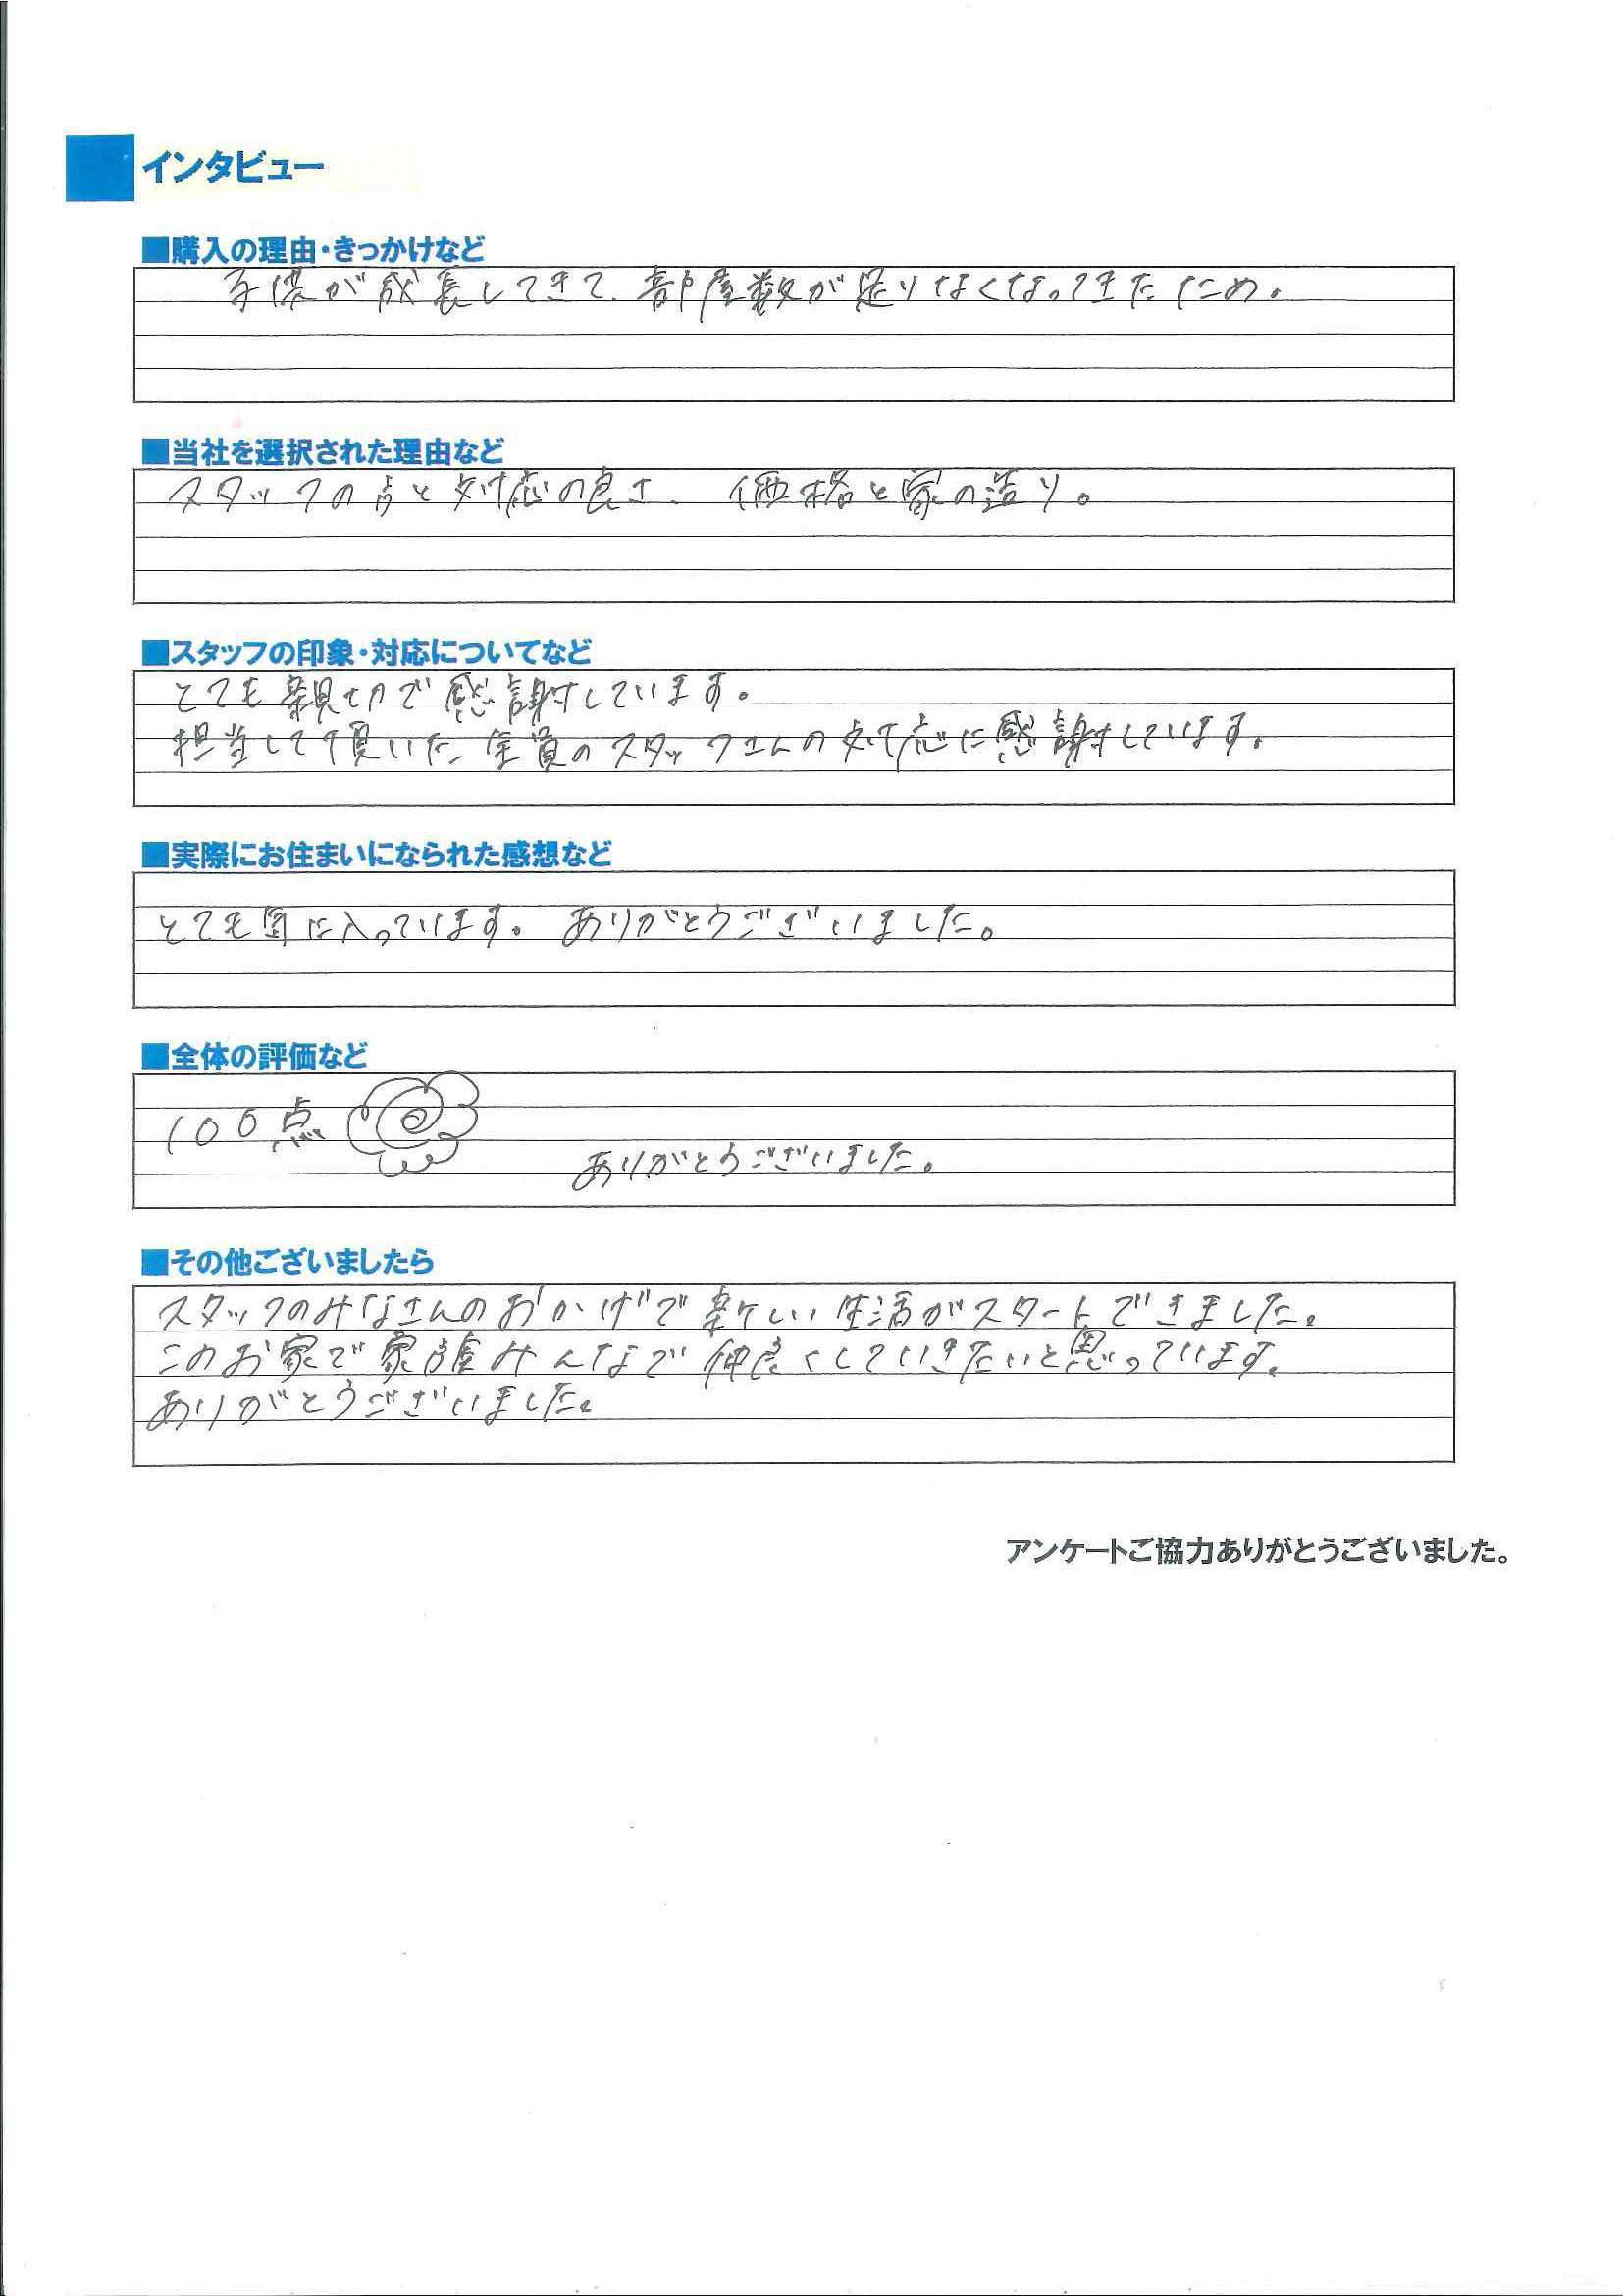 インタビュー
■購入の理由・きっかけなど
子供が成長してきて、部屋数が足りなくなってきたため。
■当社を選択された理由など
スタッフの方と対応の良さ、価格と家の造り。
■スタッフの印象・対応についてなど
とても親切で感謝しています。
担当して頂いた全員のスタッフさんの対応に感謝しています。
■実際にお住まいになられた感想など
とても気に入っています。ありがとうございました。
■全体の評価など
100点
ありがとうございました。
■その他ございましたら
スタッフのみなさんのおかげで新しい生活がスタートできました。
このお家で家族みんなで仲良くしていきたいと思っています。
ありがとうございました。
アンケートご協力ありがとうございました。